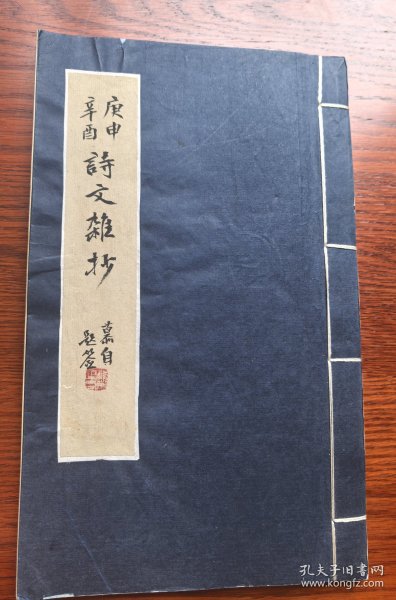 庚申
辛酉
詩文雜抄
慕自
題簽
孔夫子旧书网
www.kongfz.com